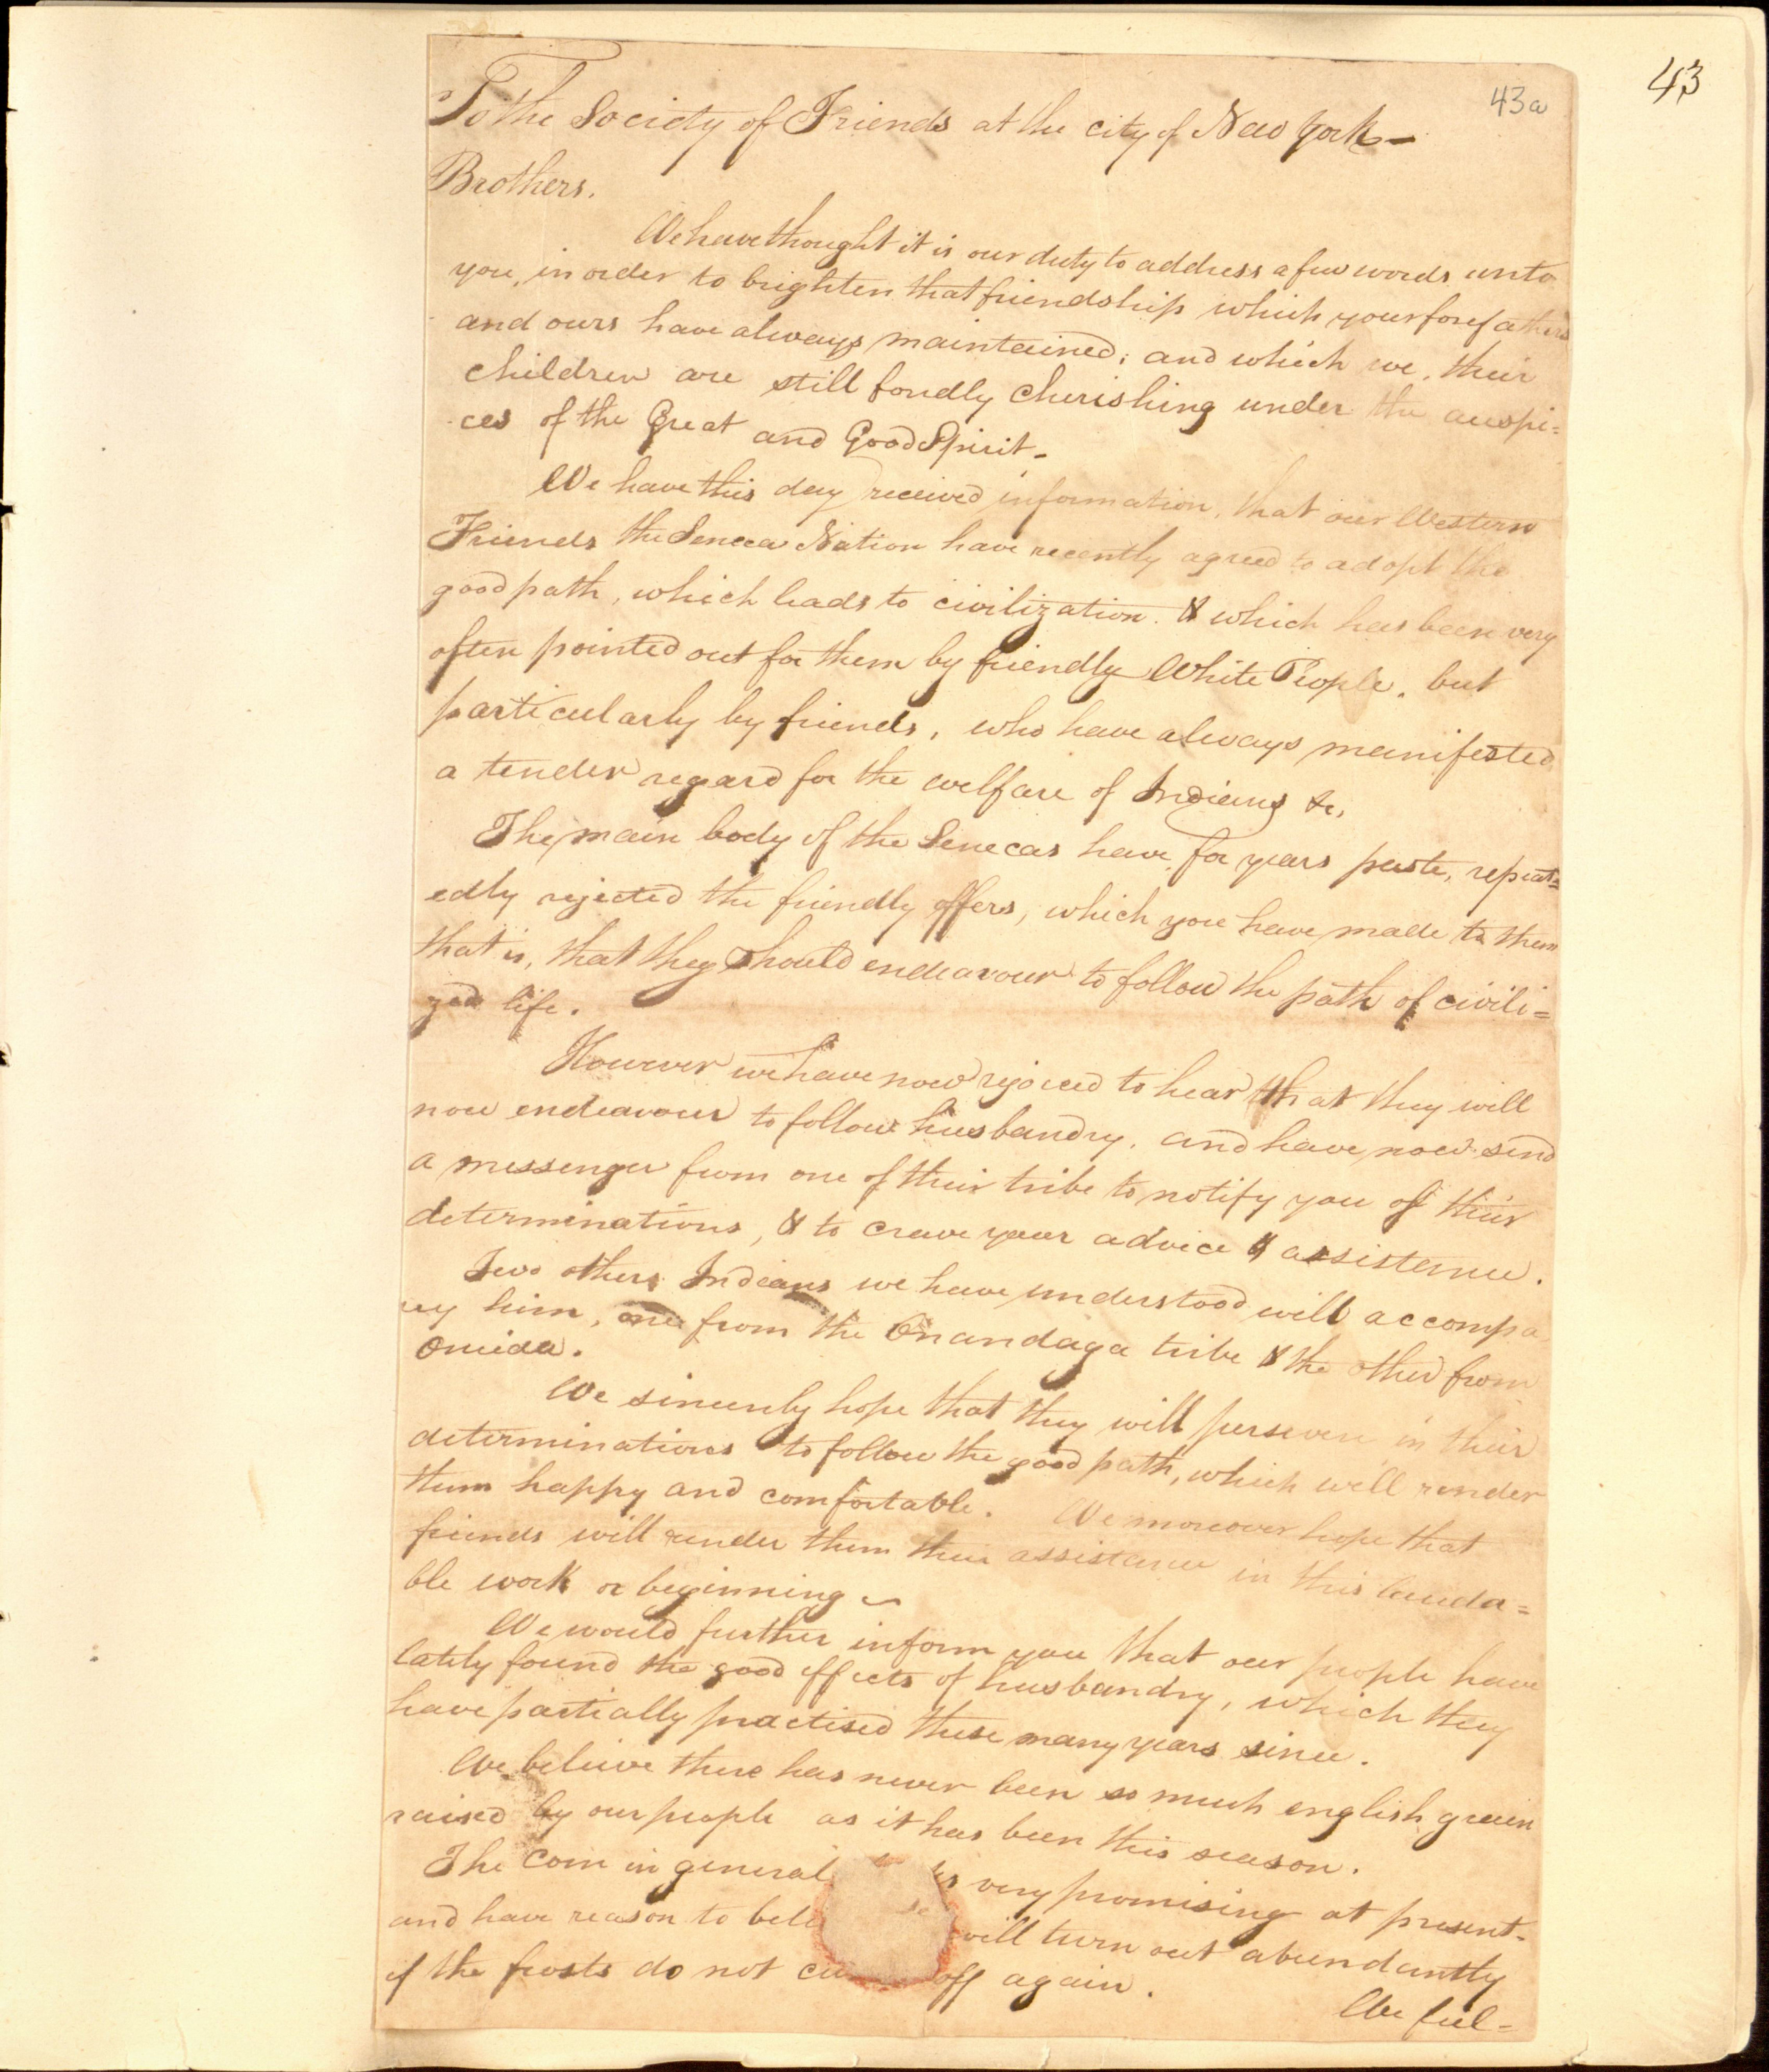 43
43a
To the Society of Friends at the city of New York—
Brothers.
We have thought it is our duty to address a few words unto
you, in order to brighten that friendship which your forefathers
and ours have always maintained; and which we, their
children are still fondly cherishing under the auspi=
ces of the Great and Good Spirit.
We have this day received information, that our Western
Friends the Seneca Nation have recently agreed to adopt the
good path, which leads to civilization. & which has been very
often pointed out for them by friendly White People, but
particularly by friends, who have always manifested
a tender regard for the welfare of Indians &c,
The main body of the Senecas have, for years paste, repeat=
edly rejected the friendly offers, which you have made to them
that is, that they should endeavour to follow the path of civili=
zed life.
However we have now rejoiced to hear that they will
now endeavour to follow husbandry, and have now send
a messenger from one of their tribe to notify you of their
determinations, & to crave your advice & assistance.
Two others Indians we have understood will accompa
ny him, one from the Onandaga tribe & the other from
Oneida.
We sincerely hope that they will persevere in their
determinations to follow the good path, which will render
them happy and comfortable. We moreover hope that
friends will render them their assistance in this lauda=
ble work or beginning
We would further inform you that our people have
lately found the good effects of husbandry, which they
have partially practised these many years since.
We believe there has never been so much english grain
raised by our people as it has been this season.
The Corn in general very promising at present.
and have reason to will turn out abundantly
if the frosts do not off again.
We feel-